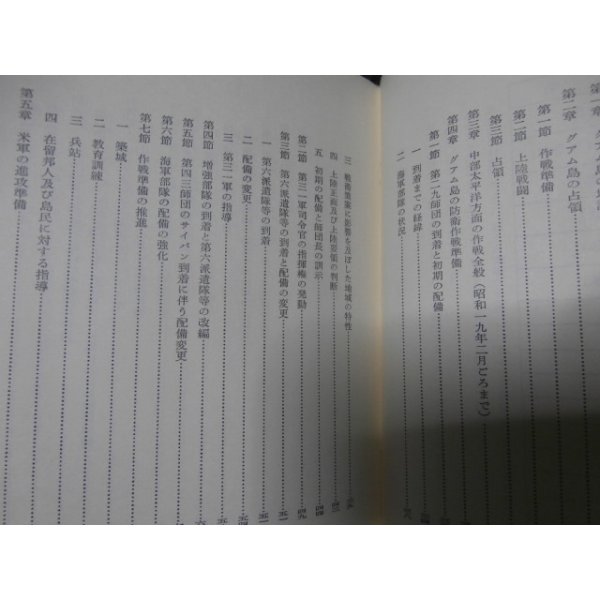 第二章 グアム島の占領
第一節 作戦準備
第二節 上陸戦闘
第三節 占領
第三章 中部太平洋方面の作戦全般(昭和一九年二月ごろまで)
第四章 グアム島の防衛作戦準備
第一節 第二九師団の到着と初期の配備
一 到着までの経緯
二 海軍部隊の状況
三 戦術策案に影響を及ぼした地域の特性
四 上陸正面及び上陸要領の判断
五 初期の配備と師団長の訓示
第二節 第三一軍司令官の指揮権の発動
第三節 第六派遣隊等の到着と配備の変更
一 第六派遣隊等の到着
二 配備の変更
三 第三一軍の指導
第四節 増強部隊の到着と第六派遣隊等の改編
第五節 第四三師団のサイパン到着に伴う配備変更
第六節 海軍部隊の配備の強化
第七節 作戦準備の推進
一 築城
二 教育訓練
三 兵站
四 在留邦人及び島民に対する指導
第五章 米軍の進攻準備